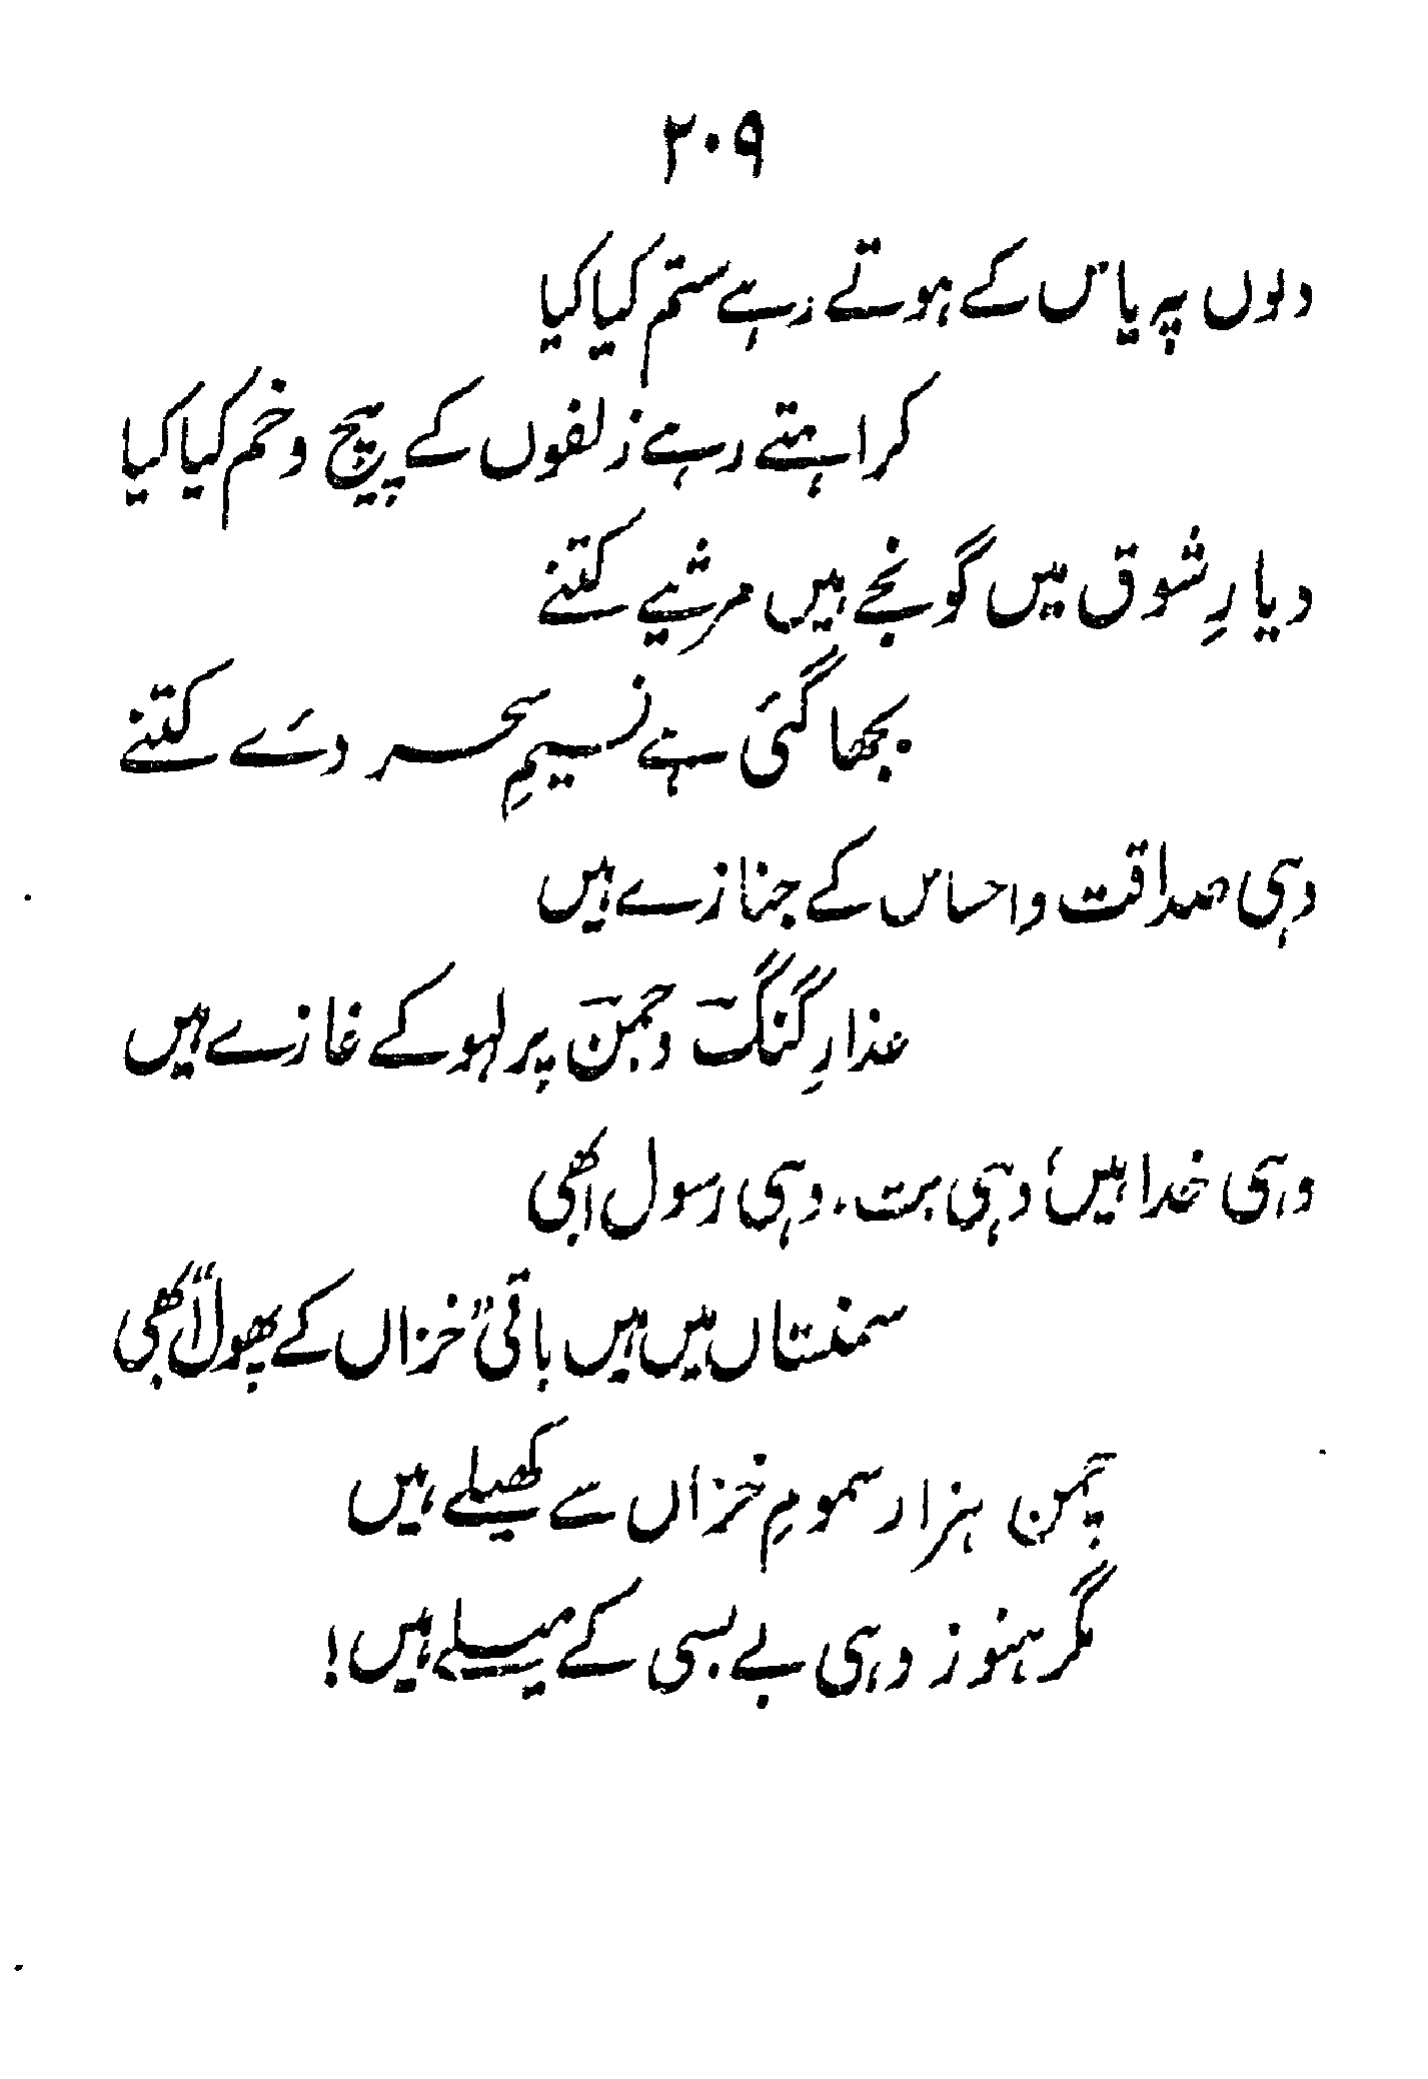 ۲۰۹
دلوں پہ یاس کے ہوتے رہے ستم کیا کیا
کراہتے رہے زلفوں کے پیچ و خم کیا کیا
دیارِ شوق میں گونجے ہیں مرثیے کتنے
بجھا گئی ہے نسیمِ سحر دئے کتنے
وہی صداقت و احساس کے جنازے ہیں
عذارِ گنگ و جمن پر لہو کے غازے ہیں
وہی خدا ہیں، وہی بت، وہی رسول ابھی
سمنستاں میں ہیں باقی "خزاں کے پھول" ابھی
چمن ہزار سمومِ خزاں سے کھیلے ہیں
مگر ہنوز وہی بے بسی کے میلے ہیں!